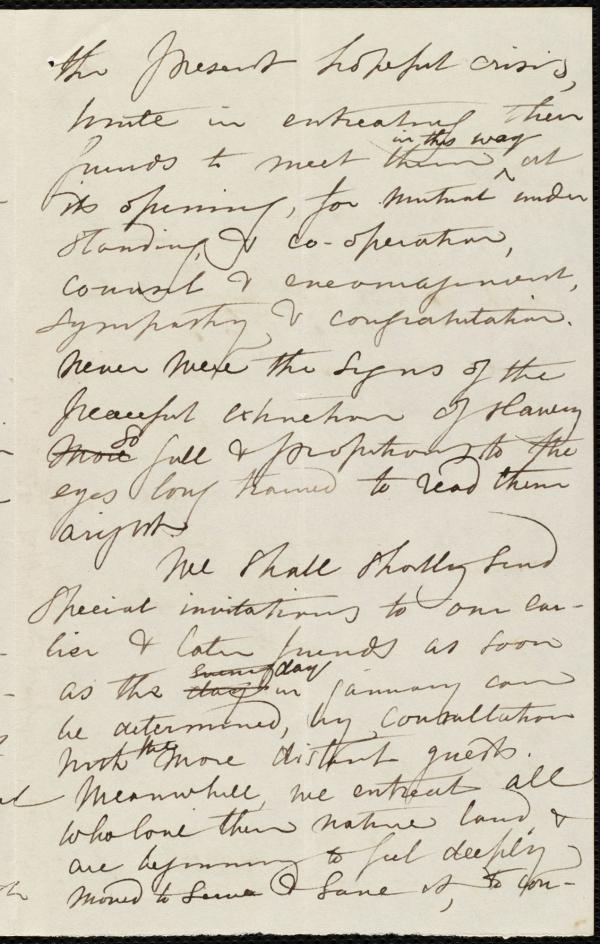 the present hopeful crisis,
unite in entreating their
in this way
friends to meet them ^ at
its opening, for mutual under
standing, & co-operation,
counsel & encouragement,
sympathy & congratulation.
Never were the signs of the
peaceful extinction of slavery
so
more full & propitious, to the
eyes long trained to read them
aright.
We shall shortly send
special invitations to our ear-
lier & later friends as soon
evening day
as the day in January can
be determined, by consultation
with the more distant guests.
Meanwhile, we entreat all
who love their native land, &
are beginning to feel deeply
moved to serve & save it, to con-